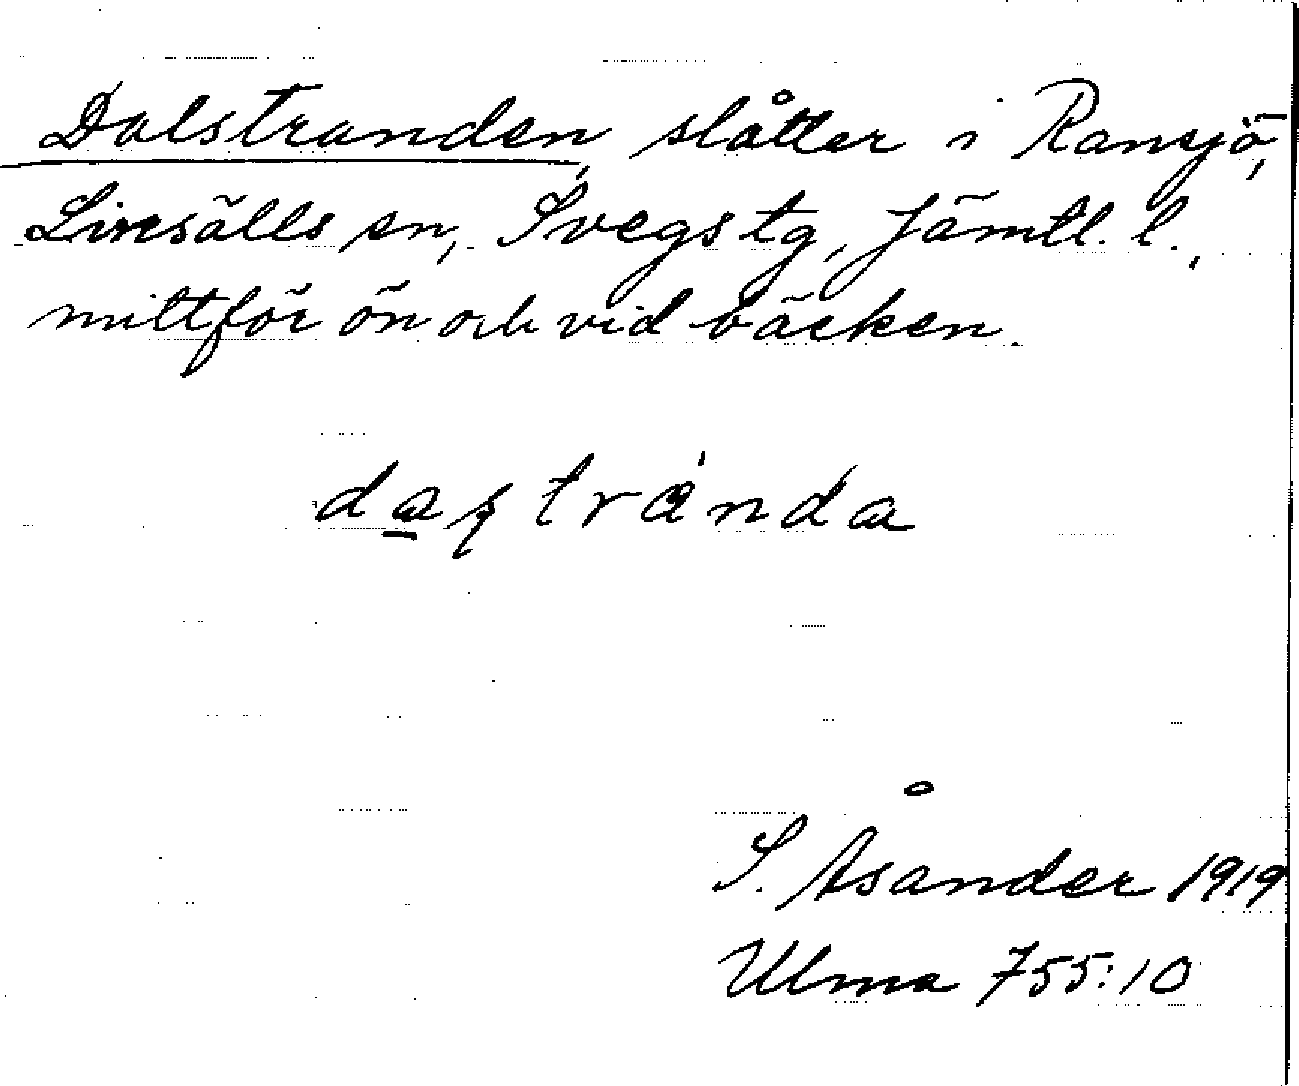 Dalstranden, slåtter i Ransjö,
Linsälls sn, Svegs tg, Jämtl. l.,
mittför ön och vid bäcken.
S. Åsander 1919
Ulma 755:10